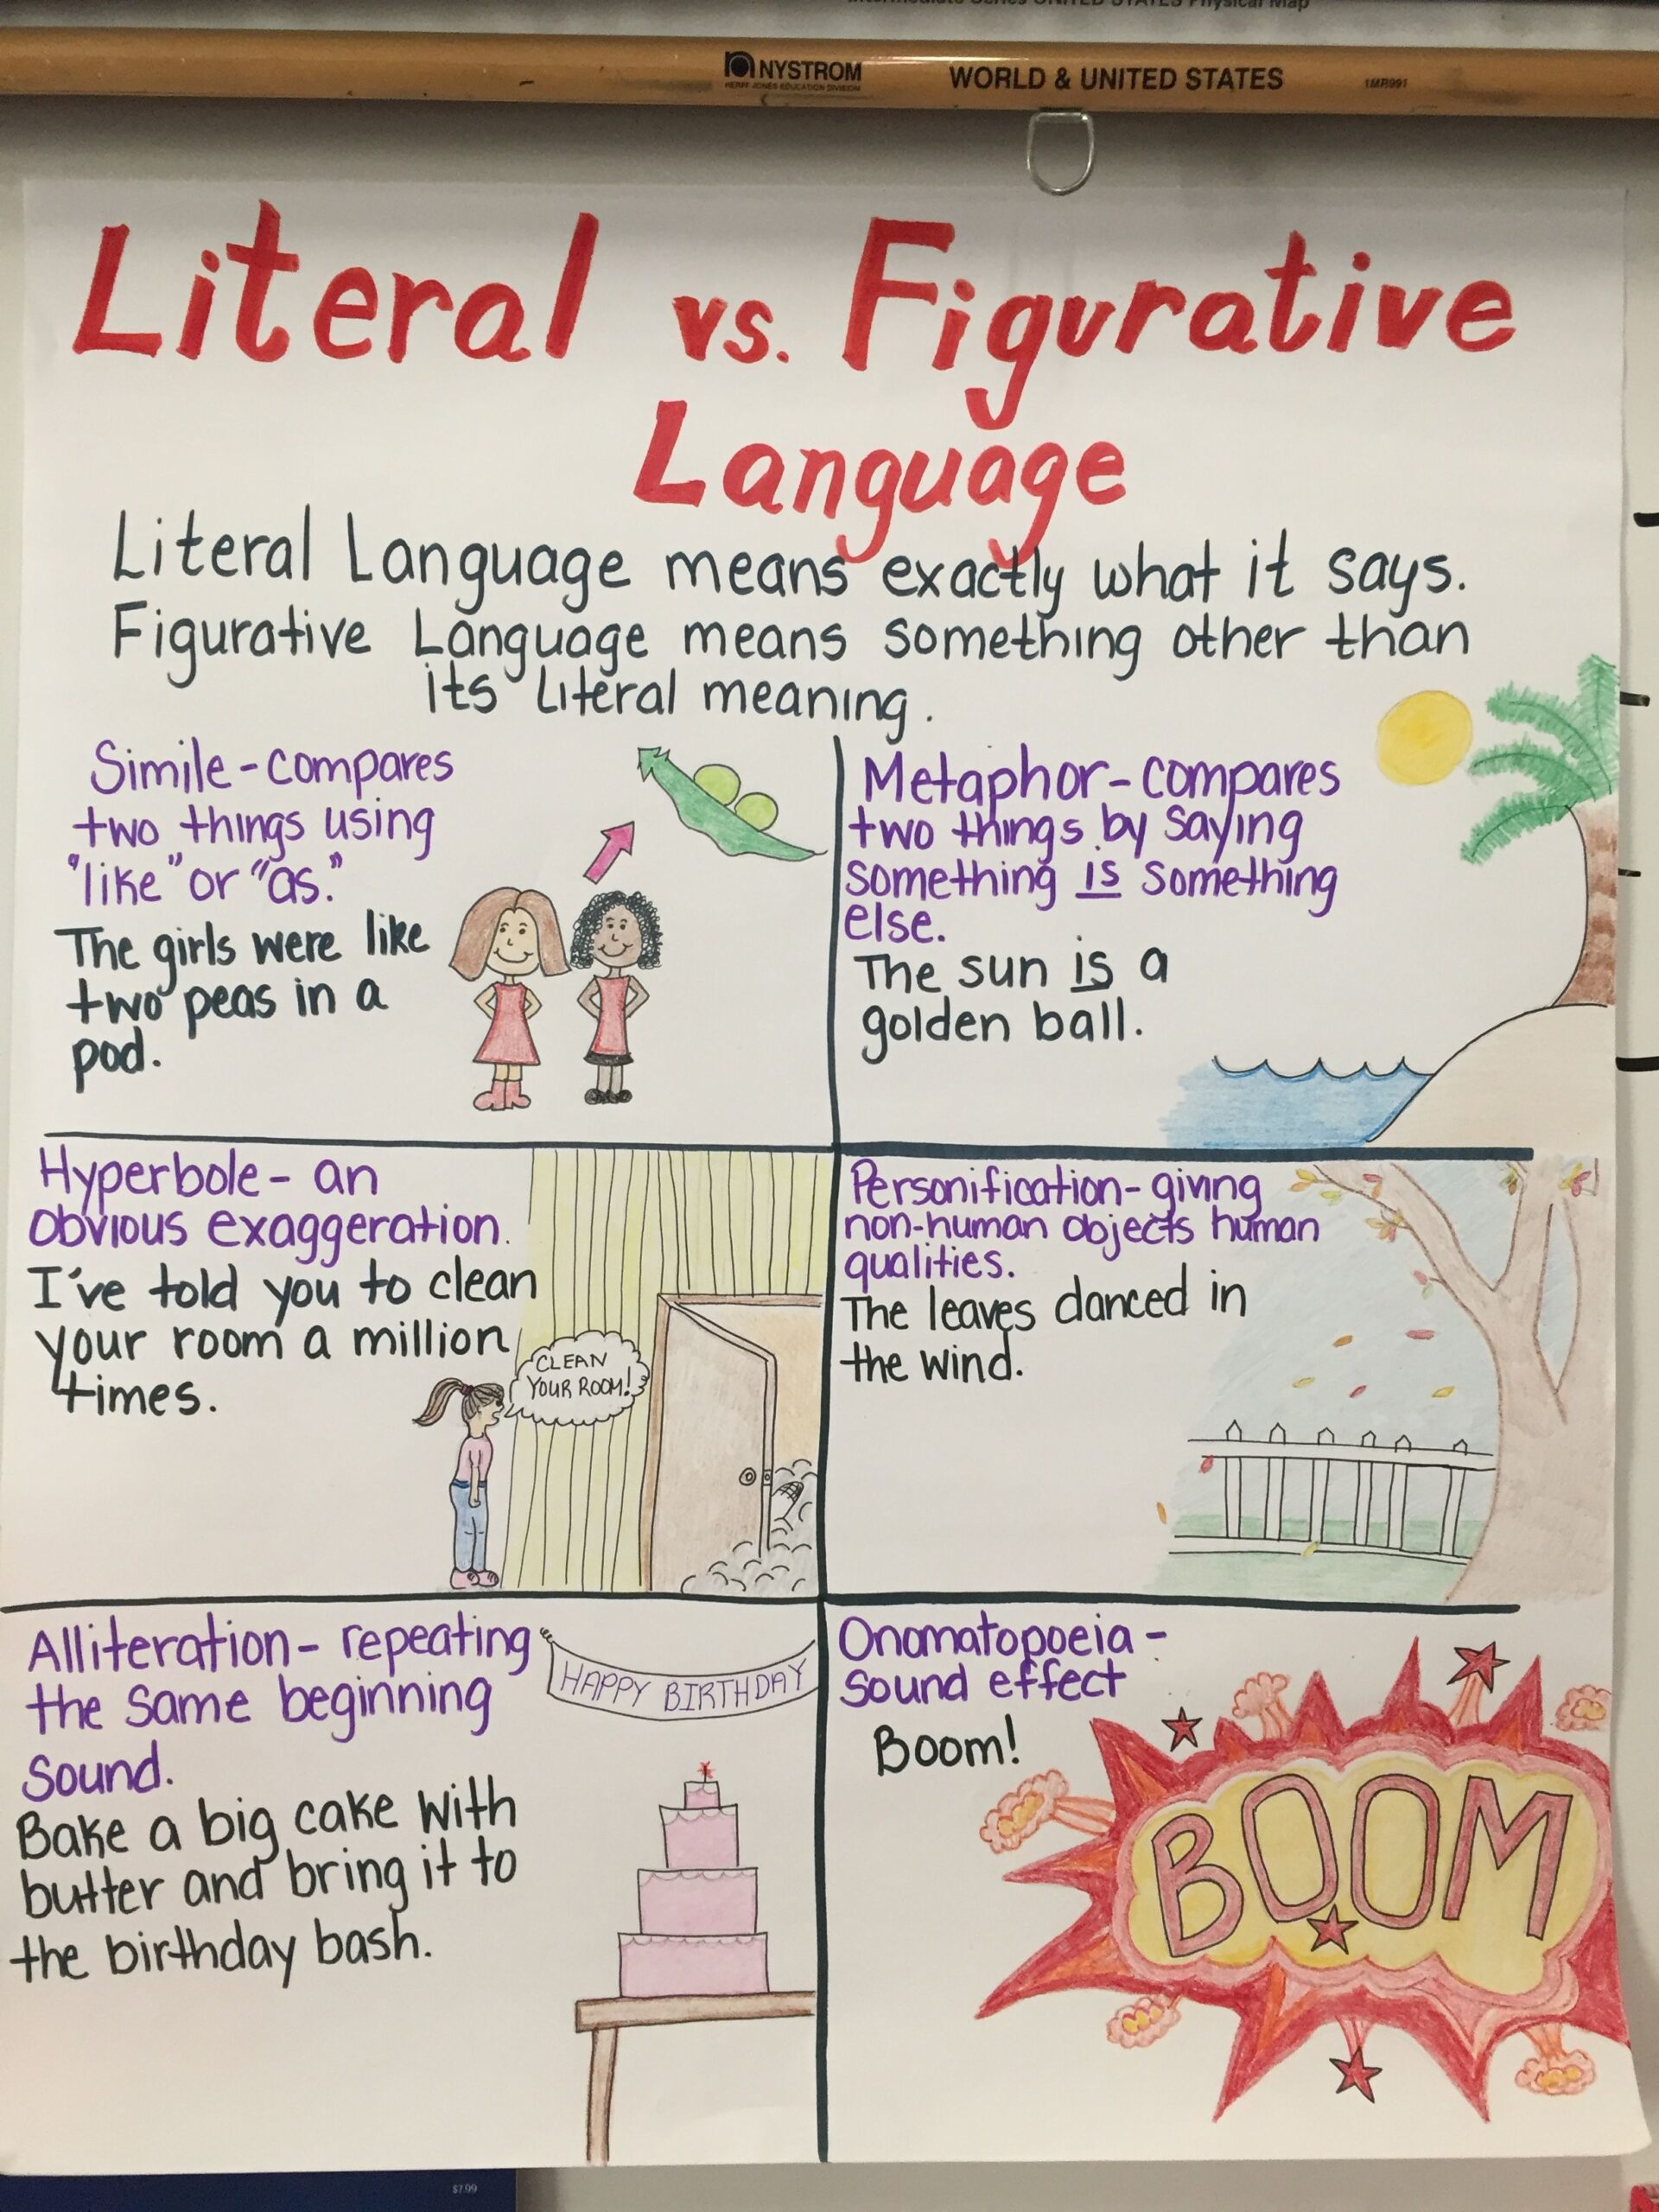 Intermediate Series UNITED STATES Physical Map
NYSTROM
HERFF JONES EDUCATION DIVISION
WORLD & UNITED STATES
1MR991
Literal vs. Figurative
Language
Literal Language means exactly what it says.
Figurative Language means something other than
its literal meaning.
Simile - compares
two things using
"like" or "as."
The girls were like
two peas in a
pod.
Metaphor - compares
two things by saying
something is something
else.
The sun is a
golden ball.
Hyperbole - an
obvious exaggeration.
I've told you to clean
your room a million
times.
CLEAN
YOUR ROOM!
Personification - giving
non-human objects human
qualities.
The leaves danced in
the wind.
Alliteration - repeating
the same beginning
sound.
Bake a big cake with
butter and bring it to
the birthday bash.
HAPPY BIRTHDAY
Onomatopoeia -
sound effect
Boom!
BOOM
$7.99